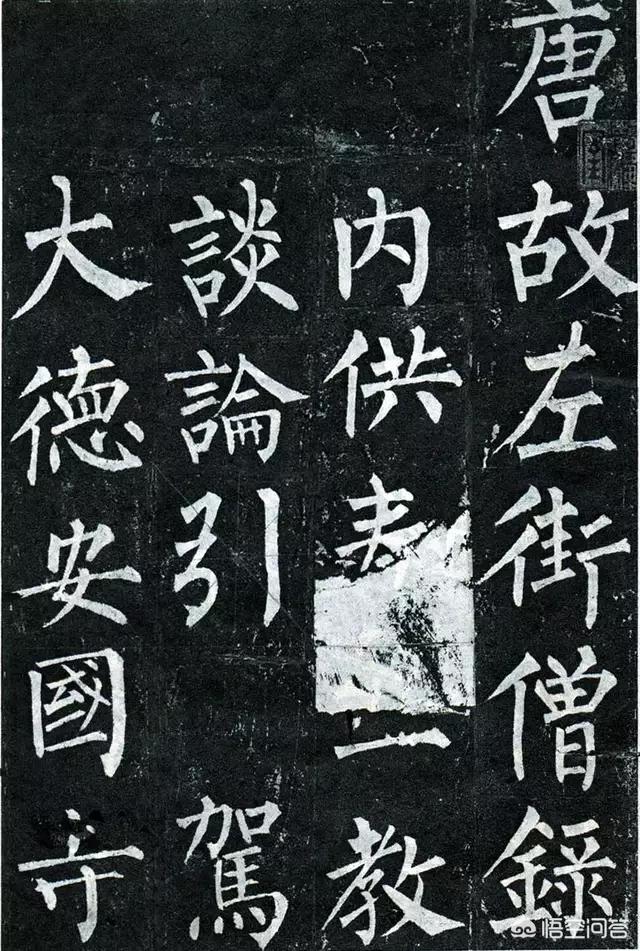 唐故左街僧錄
内供教
談論引駕
大德安國寺
悟空问答